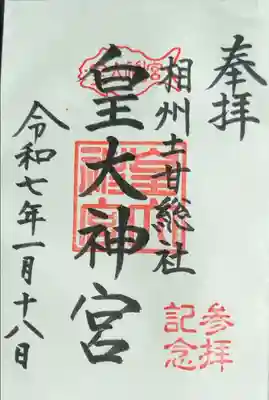 奉拝
相州土甘総社
皇大神宮
令和七年一月十八日
参拝
記念